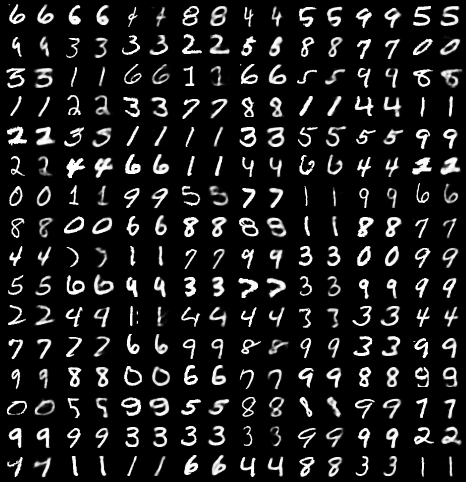 6 6 6 6 4 4 8 8 4 4 5 5 9 9 5 5
9 9 3 3 3 3 2 2 5 5 8 8 7 7 0 0
3 3 1 1 6 6 1 1 6 6 5 5 9 9 8 8
1 1 2 2 3 3 7 7 8 8 1 1 4 4 1 1
2 2 3 3 1 1 1 1 3 3 5 5 5 5 9 9
2 2 4 4 6 6 1 1 4 4 6 6 4 4 2 2
0 0 1 1 9 9 5 5 7 7 1 1 9 9 6 6
8 8 0 0 6 6 8 8 8 8 1 1 8 8 7 7
4 4 1 1 7 7 9 9 3 3 0 0 9 9
5 5 6 6 9 9 3 3 7 7 3 3 9 9 9 9
2 2 4 4 1 1 4 4 4 4 3 3 3 3 4 4
7 7 7 7 6 6 9 9 8 8 9 9 3 3 9 9
9 9 8 8 0 0 6 6 7 7 9 9 8 8 9 9
0 0 5 5 9 9 5 5 8 8 8 8 9 9 7 7
9 9 9 9 3 3 3 3 3 3 9 9 9 9 2 2
7 7 1 1 1 1 6 6 4 4 8 8 3 3 1 1